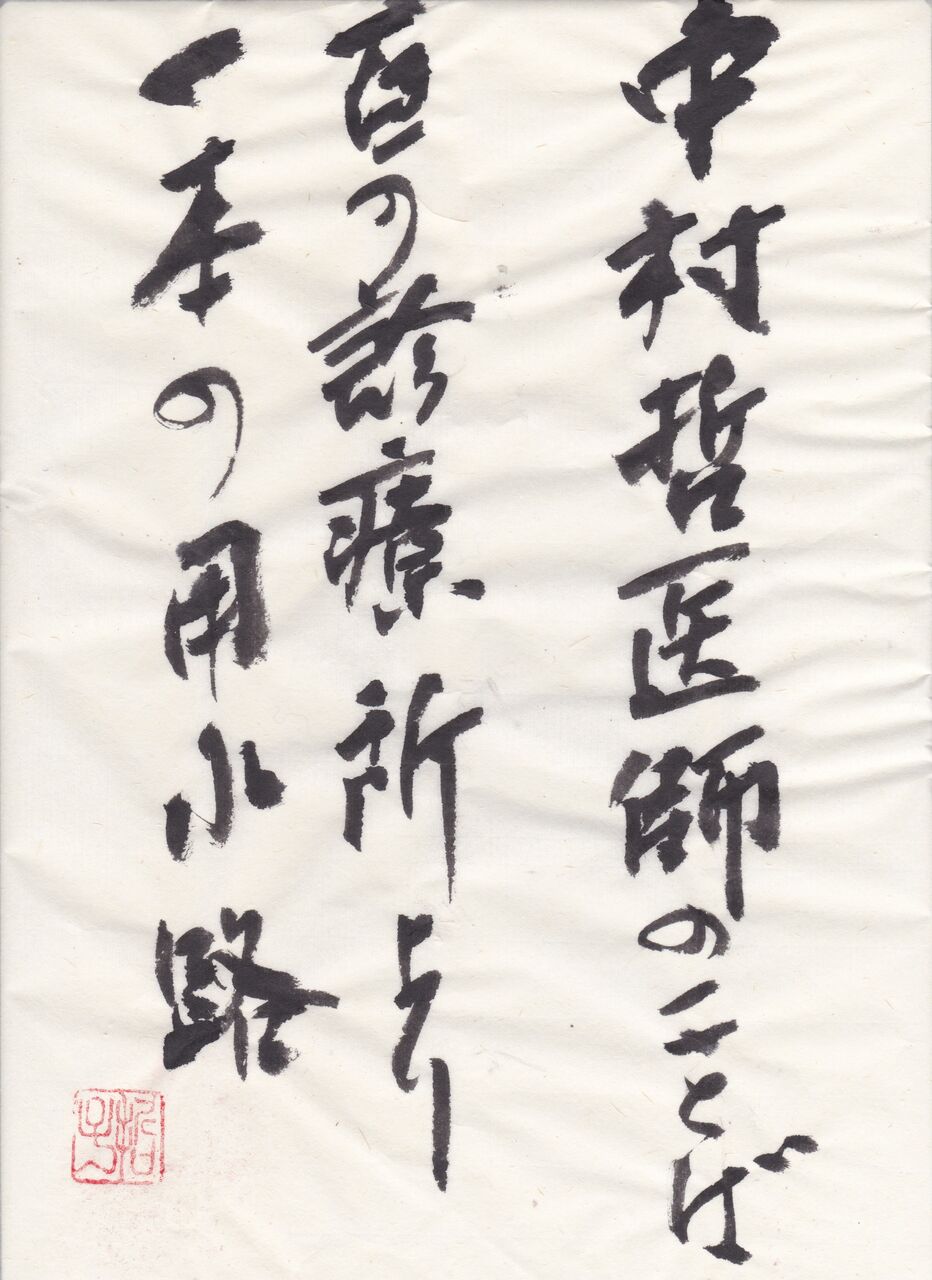 中村哲医師のことば
百の診療所より
一本の用水路